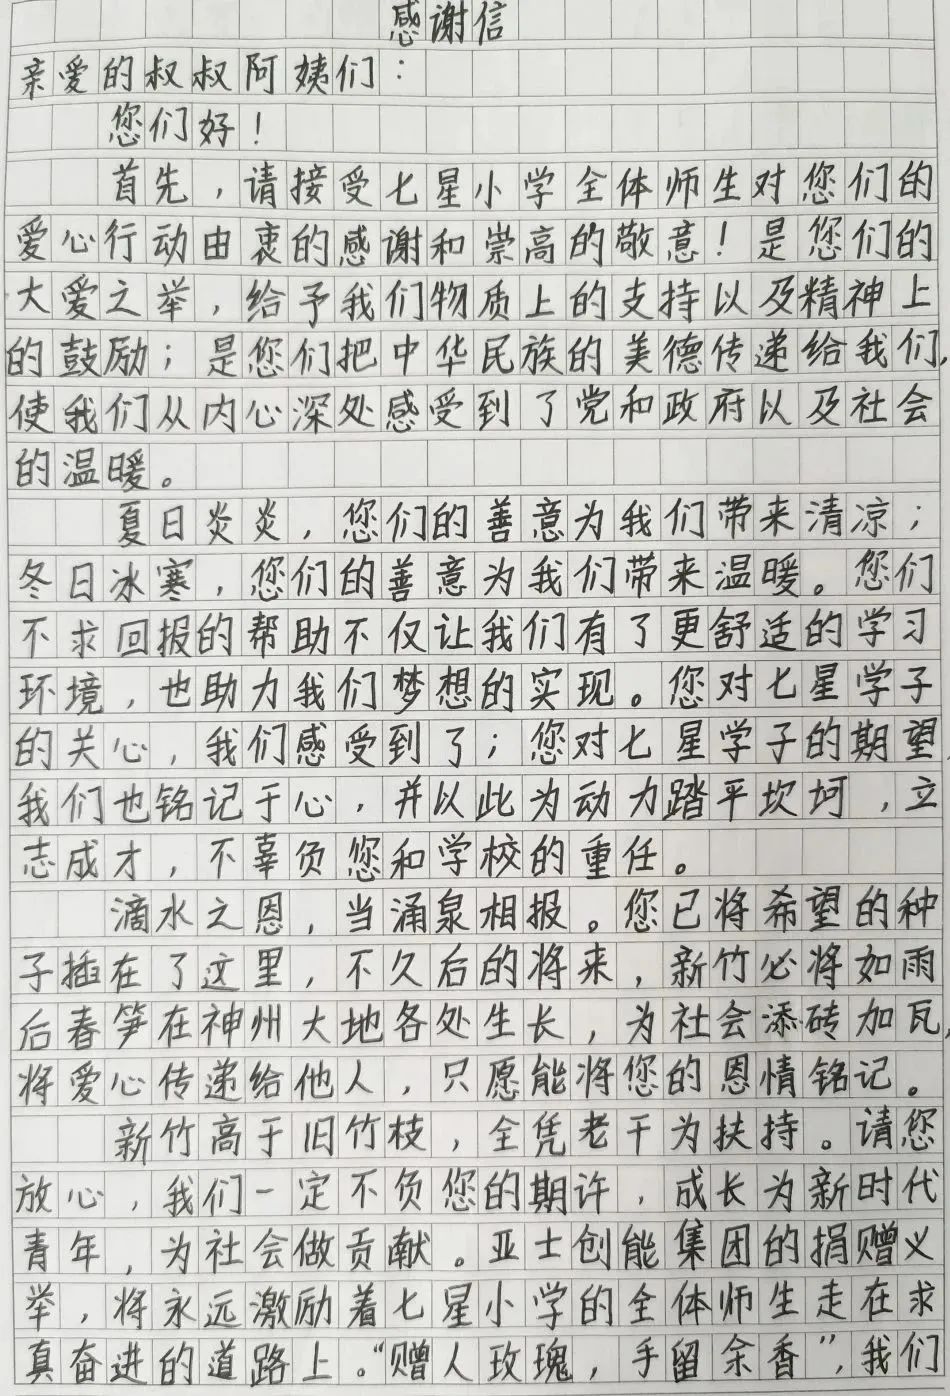 感谢信
亲爱的叔叔阿姨们：
您们好！
首先，请接受七星小学全体师生对您们的
爱心行动由衷的感谢和崇高的敬意！是您们的
大爱之举，给予我们物质上的支持以及精神上
的鼓励；是您们把中华民族的美德传递给我们，
使我们从内心深处感受到了党和政府以及社会
的温暖。
夏日炎炎，您们的善意为我们带来清凉；
冬日冰寒，您们的善意为我们带来温暖。您们
不求回报的帮助不仅让我们有了更舒适的学习
环境，也助力我们梦想的实现。您对七星学子
的关心，我们感受到了；您对七星学子的期望，
我们也铭记于心，并以此为动力踏平坎坷，立
志成才，不辜负您和学校的重任。
滴水之恩，当涌泉相报。您已将希望的种
子插在了这里，不久后的将来，新竹必将如雨
后春笋在神州大地各处生长，为社会添砖加瓦，
将爱心传递给他人，只愿能将您的恩情铭记。
新竹高于旧竹枝，全凭老干为扶持。请您
放心，我们一定不负您的期许，成长为新时代
青年，为社会做贡献。亚士创能集团的捐赠义
举，将永远激励着七星小学的全体师生走在求
真奋进的道路上。“赠人玫瑰，手留余香”，我们